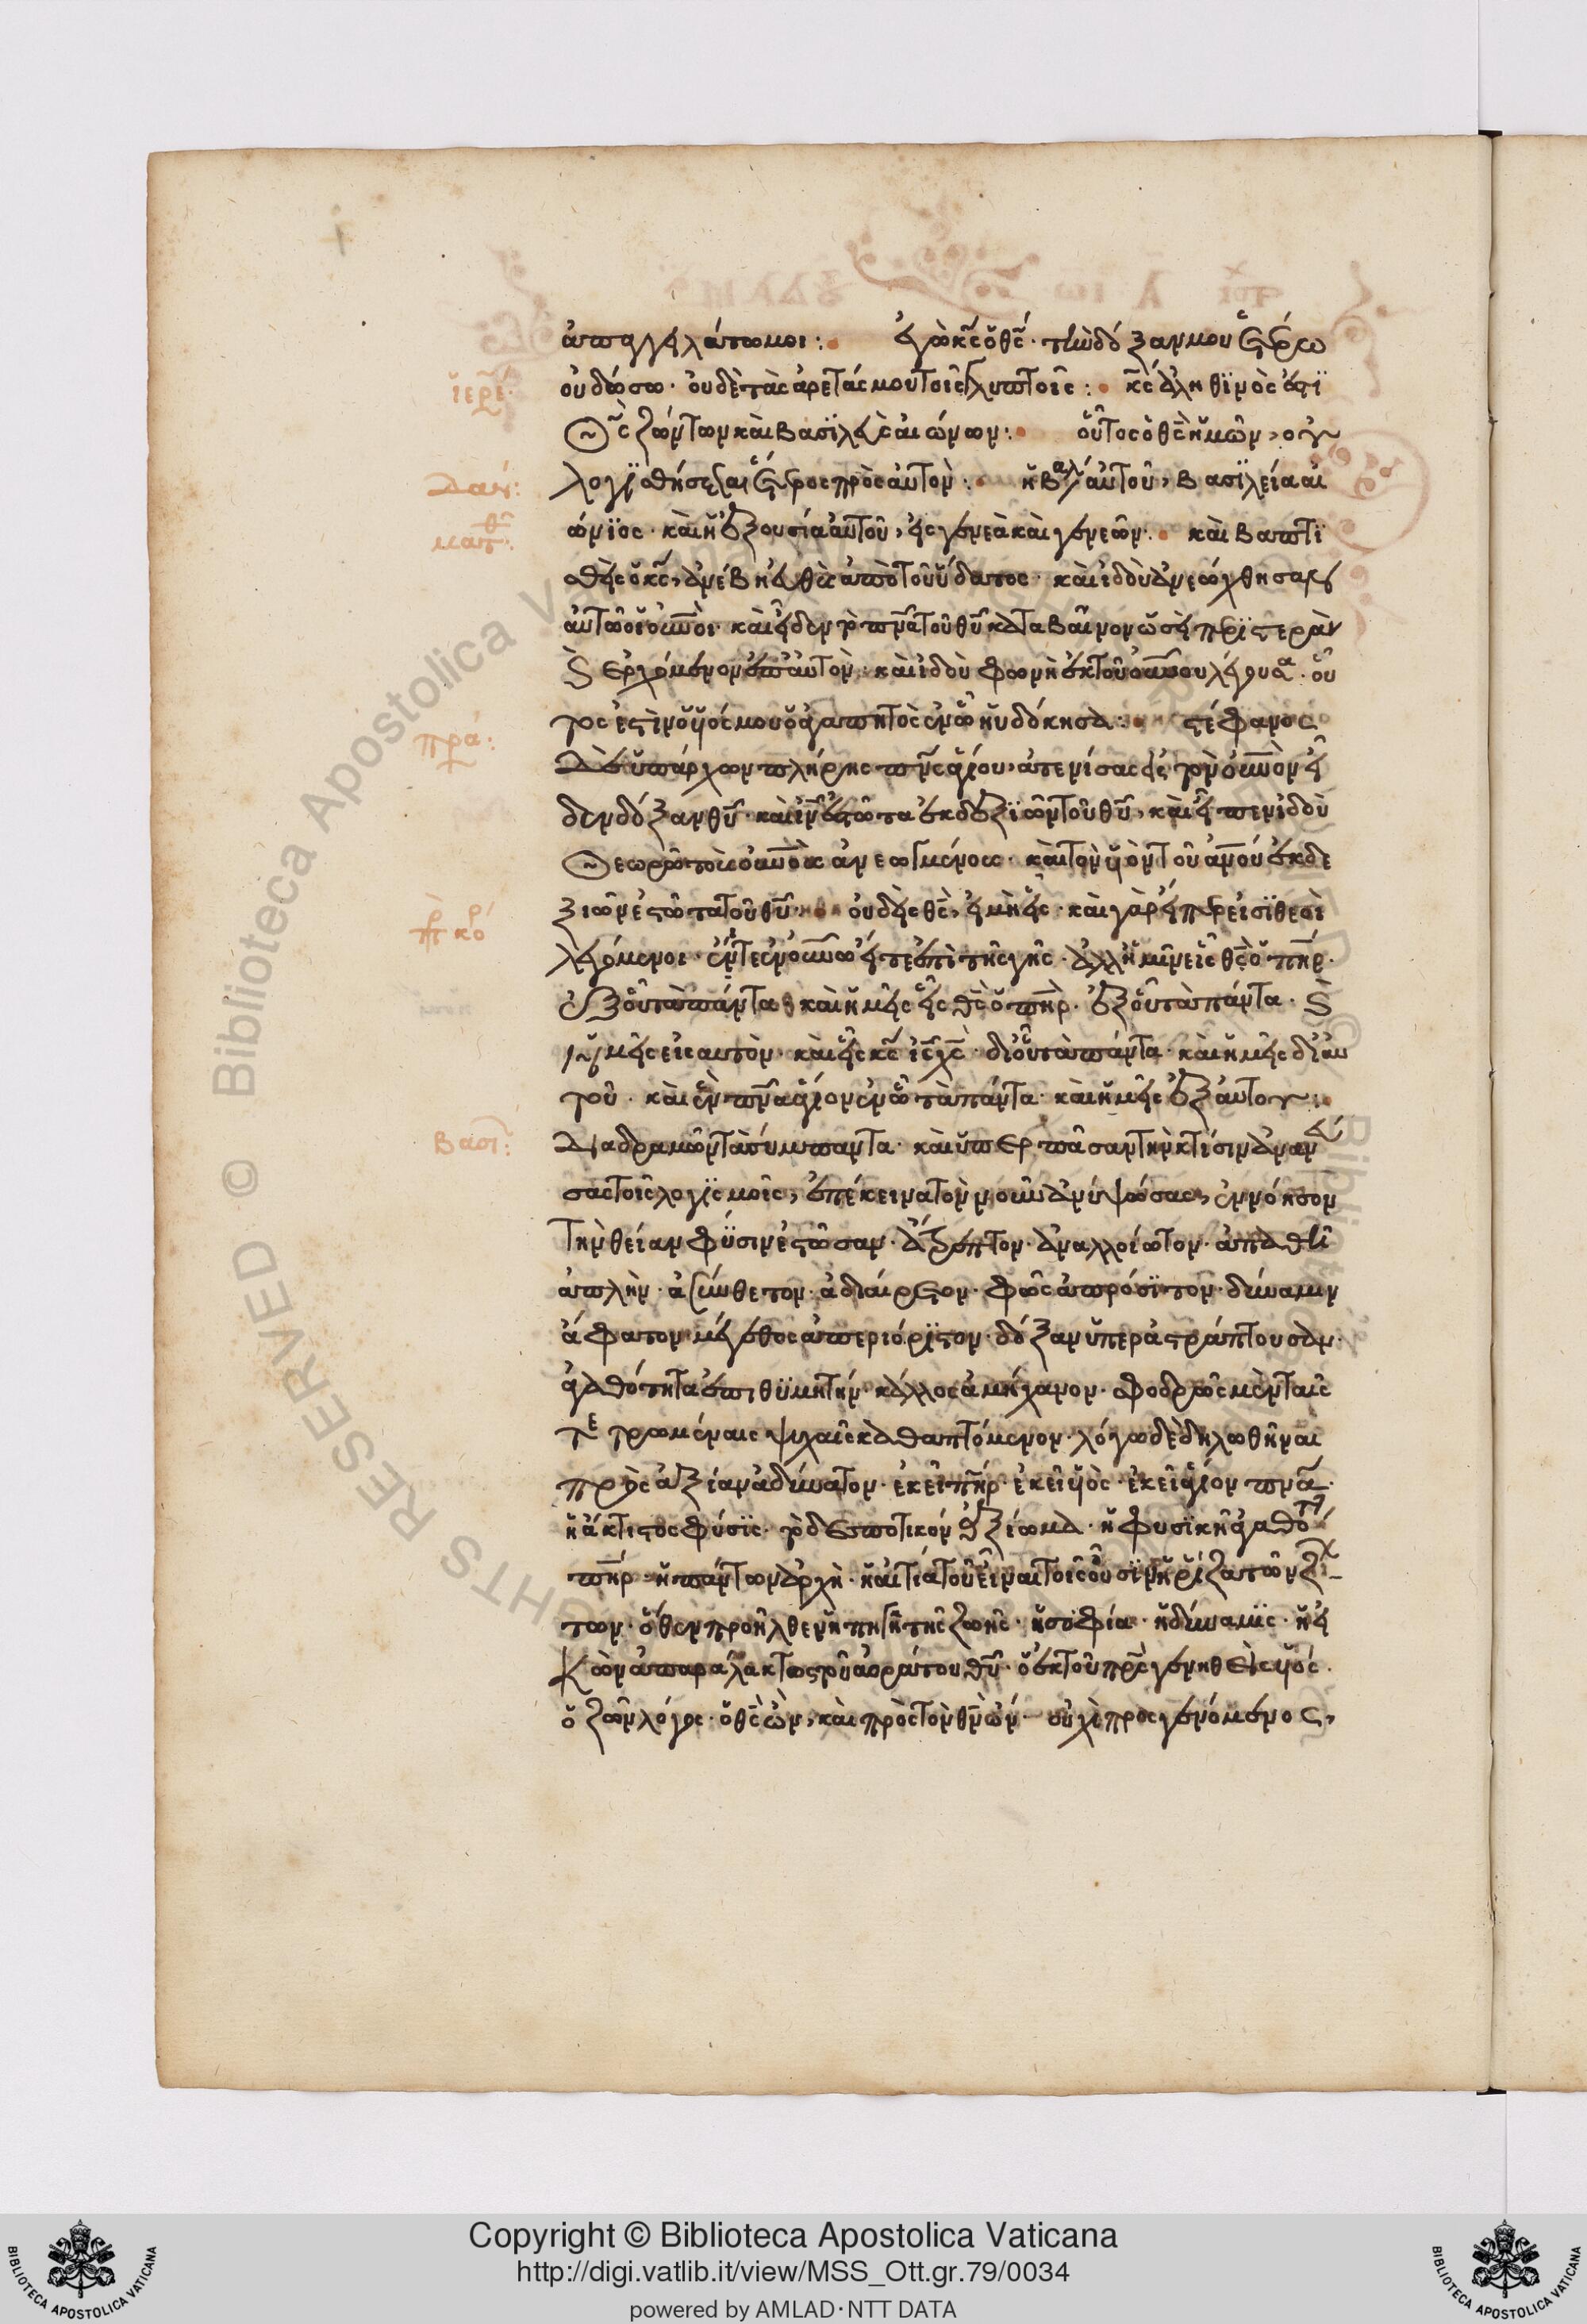 ἀπαγγειλάτω μοι: ἐγὼ κς ὁ θς· τὴν δόξαν μου ἑτέρω
Ἱερε: οὐ δώσω· οὐδὲ τὰς ἀρετάς μου τοῖς γλυπτοῖς: κς ἀληθϊνὸς ἐστϊ
θς ζώντων καὶ βασϊλεὺς αἰώνων: οὗτος ὁ θς ἡμῶν, οὐ
Δαν: λογϊσθήσεται ἕτερος πρὸς αὐτὸν: ἡ βασλ αὐτοῦ, βασϊλεία αἰ
Ματθ: ώνϊος· καὶ ἡ ἐξουσία αὐτοῦ, εἰς γενεὰ καὶ γενεῶν: καὶ βαπτϊ
σθεὶς ὁ κς, ἀνέβη εὐθὺς ἀπὸ τοῦ ὕδατος· καὶ ἰδοὺ ἀνεώχθησαν
αὐτῶ οἱ οὐνοὶ· καὶ εἶδεν τὸ πνα τοῦ θυ καταβαῖνον ὡσεὶ περϊστερὰν
καὶ ερχόμενον ἐπ αὐτὸν: καὶ ἰδοὺ φωνὴ ἐκ τοῦ οὐνου λέγουσα· οὗ
τος ἐστὶν ὁ υἱός μου ὁ ἀγαπητὸς ἐν ὧ ηὐδόκησα: στέφανος
Πρα: δὲ ὑπάρχων πλήρης πνς ἁγίου, ἀτενίσας εἰς τὸν οὐνὸν εἶ
δεν δόξαν θυ· καὶ ιν ἑστῶτα ἐκ δεξϊῶν τοῦ θυ, καὶ εἶπεν ἰδοὺ
θεωρῶ τοὺς οὐνοὺς ἀνεωγμένους· καὶ τὸν υἱὸν τοῦ ἀνου ἐκ δε
Πρ κορ: ξιῶν ἑστῶτα τοῦ θυ: οὐδεὶς θς, εἰ μὴ εἷς· καὶ γὰρ εἴπερ εἰσϊ θεοὶ
λεγόμενοι· εἴτε ἐν οὐνῶ εἴτε ἐπὶ τῆς γῆς· ἀλλ ἡμῖν εἷς θς ὁ πηρ·
ἐξ οὗ τὰ πάντα καὶ ἡμεῖς εἷς θς ὁ πηρ· ἐξ οὗ τὰ πάντα· καὶ
ἡμεῖς εἰς αυτὸν· καὶ εἷς κς ις χς· δι οὗ τὰ πάντα· καὶ ἡμεῖς δι αὐ
τοῦ· καὶ ἓν πνα ἅγιον ἐν ὧ τὰ πάντα· καὶ ἡμεῖς ἐξ αὐτου:
Βασι: Διαδραμὼν τὰ σύμπαντα· καὶ ὑπερ πᾶσαν τὴν κτίσιν ἀναν
σας τοῖς λογϊσμοῖς, ἐπέκεινα τὸν νοῦν ἀνυψώσας, ἐννόησον
Τὴν θείαν φύσιν ἑστῶσαν· ἄτρεπτον· ἀναλλοίωτον· ἀπαθῆ
ἁπλὴν· ἀσύνθετον· ἀδιαίρετον· φῶς ἀπρόσϊτον· δύναμιν
ἄφατον μέγεθος ἀπεριόρϊστον· δόξαν ὑπεραστράπτουσαν·
ἀγαθότητα ἐπιθϋμητήν· κάλλος ἀμήχανον· σφοδρῶς μὲν ταῖς
τετρωμέναις ψυχαῖς καθαπτόμενον· λόγω δὲ δηλωθῆναι
πρὸς ἀξίαν ἀδύνατον· ἐκεῖ πηρ· ἐκεῖ υἱὸς· ἐκεῖ ἅγιον πνα·
ἡ ἄκτιστος φύσϊς· τὸ δεσποτικόν ἀξίωμα· ἡ φυσϊκὴ ἀγαθότη
πηρ· ἡ πάντων ἀρχὴ· ἡ αἰτία τοῦ εἶναι τοῖς οὖσϊν· ἡ ῥίζα τῶν ζώ
των· ὅθεν προῆλθεν ἡ πηγὴ τῆς ζωῆς· ἡ σοφία· ἡ δύναμϊς· ἡ εἰ
κὼν ἀπαραλάκτως τοῦ ἀοράτου θυ· ὁ ἐκ τοῦ πρς γεννηθεὶς υἱός·
ὁ ζῶν λόγος· ὁ θς ὢν, καὶ πρὸς τὸν θν ὤν· οὐχὶ προσγενόμενος,
© Biblioteca Apostolica Vaticana RIGHTS RESERVED
Copyright © Biblioteca Apostolica Vaticana
http://digi.vatlib.it/view/MSS_Ott.gr.79/0034
powered by AMLAD·NTT DATA
BIBLIOTECA APOSTOLICA VATICANA
BIBLIOTECA APOSTOLICA VATICANA